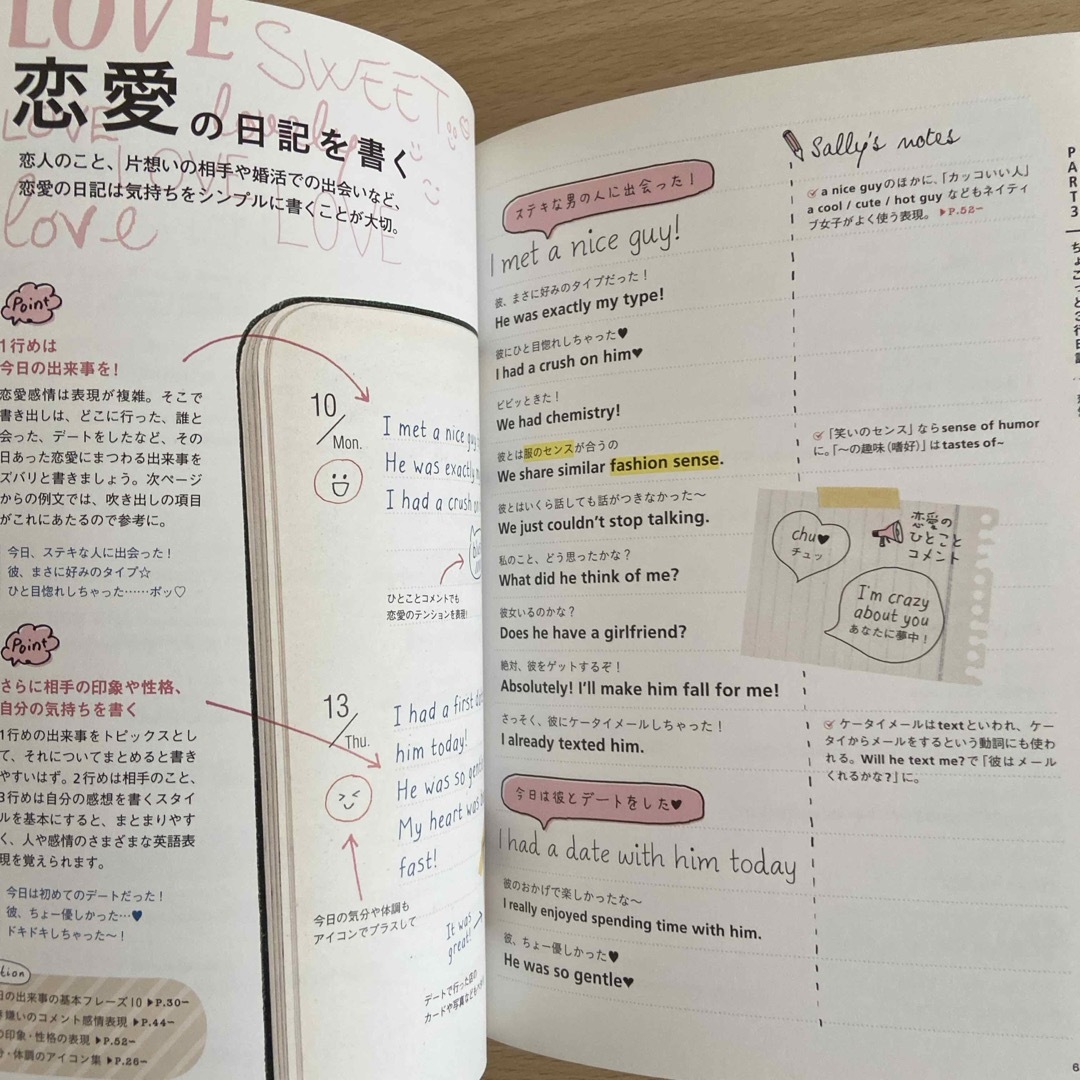 LOVE
SWEET
lovely
LOVE
LOVE
love
LOVE
恋愛の日記を書く
恋人のこと、片想いの相手や婚活での出会いなど、
恋愛の日記は気持ちをシンプルに書くことが大切。
Point
1行めは
今日の出来事を!
恋愛感情は表現が複雑。そこで
書き出しは、どこに行った、誰と
会った、デートをしたなど、その
日あった恋愛にまつわる出来事を
ズバリと書きましょう。次ページ
からの例文では、吹き出しの項目
がこれにあたるので参考に。
今日、ステキな人に出会った!
彼、まさに好みのタイプ☆
ひと目惚れしちゃった……ポッ♡
Point
さらに相手の印象や性格、
自分の気持ちを書く
1行めの出来事をトピックスとし
て、それについてまとめると書き
やすいはず。2行めは相手のこと、
3行めは自分の感想を書くスタイ
ルを基本にすると、まとまりやす
く、人や感情のさまざまな英語表
現を覚えられます。
今日は初めてのデートだった!
彼、ちょー優しかった…♥
ドキドキしちゃった〜!
日の出来事の基本フレーズ10 ▶P.30〜
嫌いのコメント感情表現 ▶P.44〜
の印象・性格の表現 ▶P.52〜
・体調のアイコン集 ▶P.26〜
10/Mon.
I met a nice guy
He was exactly
I had a crush
ひとことコメントでも
恋愛のテンションを表現!
13/Thu.
I had a first
him today!
He was so
My heart was
fast!
今日の気分や体調も
アイコンでプラスして
It was
great!
デートで行った店の
カードや写真なども
ステキな男の人に出会った!
I met a nice guy!
彼、まさに好みのタイプだった!
He was exactly my type!
彼にひと目惚れしちゃった♥
I had a crush on him♥
ビビッときた!
We had chemistry!
彼とは服のセンスが合うの
We share similar fashion sense.
彼とはいくら話しても話がつきなかった〜
We just couldn't stop talking.
私のこと、どう思ったかな?
What did he think of me?
彼女いるのかな?
Does he have a girlfriend?
絶対、彼をゲットするぞ!
Absolutely! I'll make him fall for me!
さっそく、彼にケータイメールしちゃった!
I already texted him.
今日は彼とデートをした♥
I had a date with him today
彼のおかげで楽しかったな〜
I really enjoyed spending time with him.
彼、ちょー優しかった♥
He was so gentle♥
Sally's notes
a nice guyのほかに、「カッコいい人」
a cool / cute / hot guy などもネイティ
ブ女子がよく使う表現。 ▶P.52〜
「笑いのセンス」ならsense of humor
に。「〜の趣味(嗜好)」はtastes of~
chu♥
チュッ
恋愛の
ひとこと
コメント
I'm crazy
about you
あなたに夢中!
ケータイメールはtextといわれ、ケー
タイからメールをするという動詞にも使わ
れる。Will he text me?で「彼はメール
くれるかな?」に。
PART3
ちょこっと3行日記
6